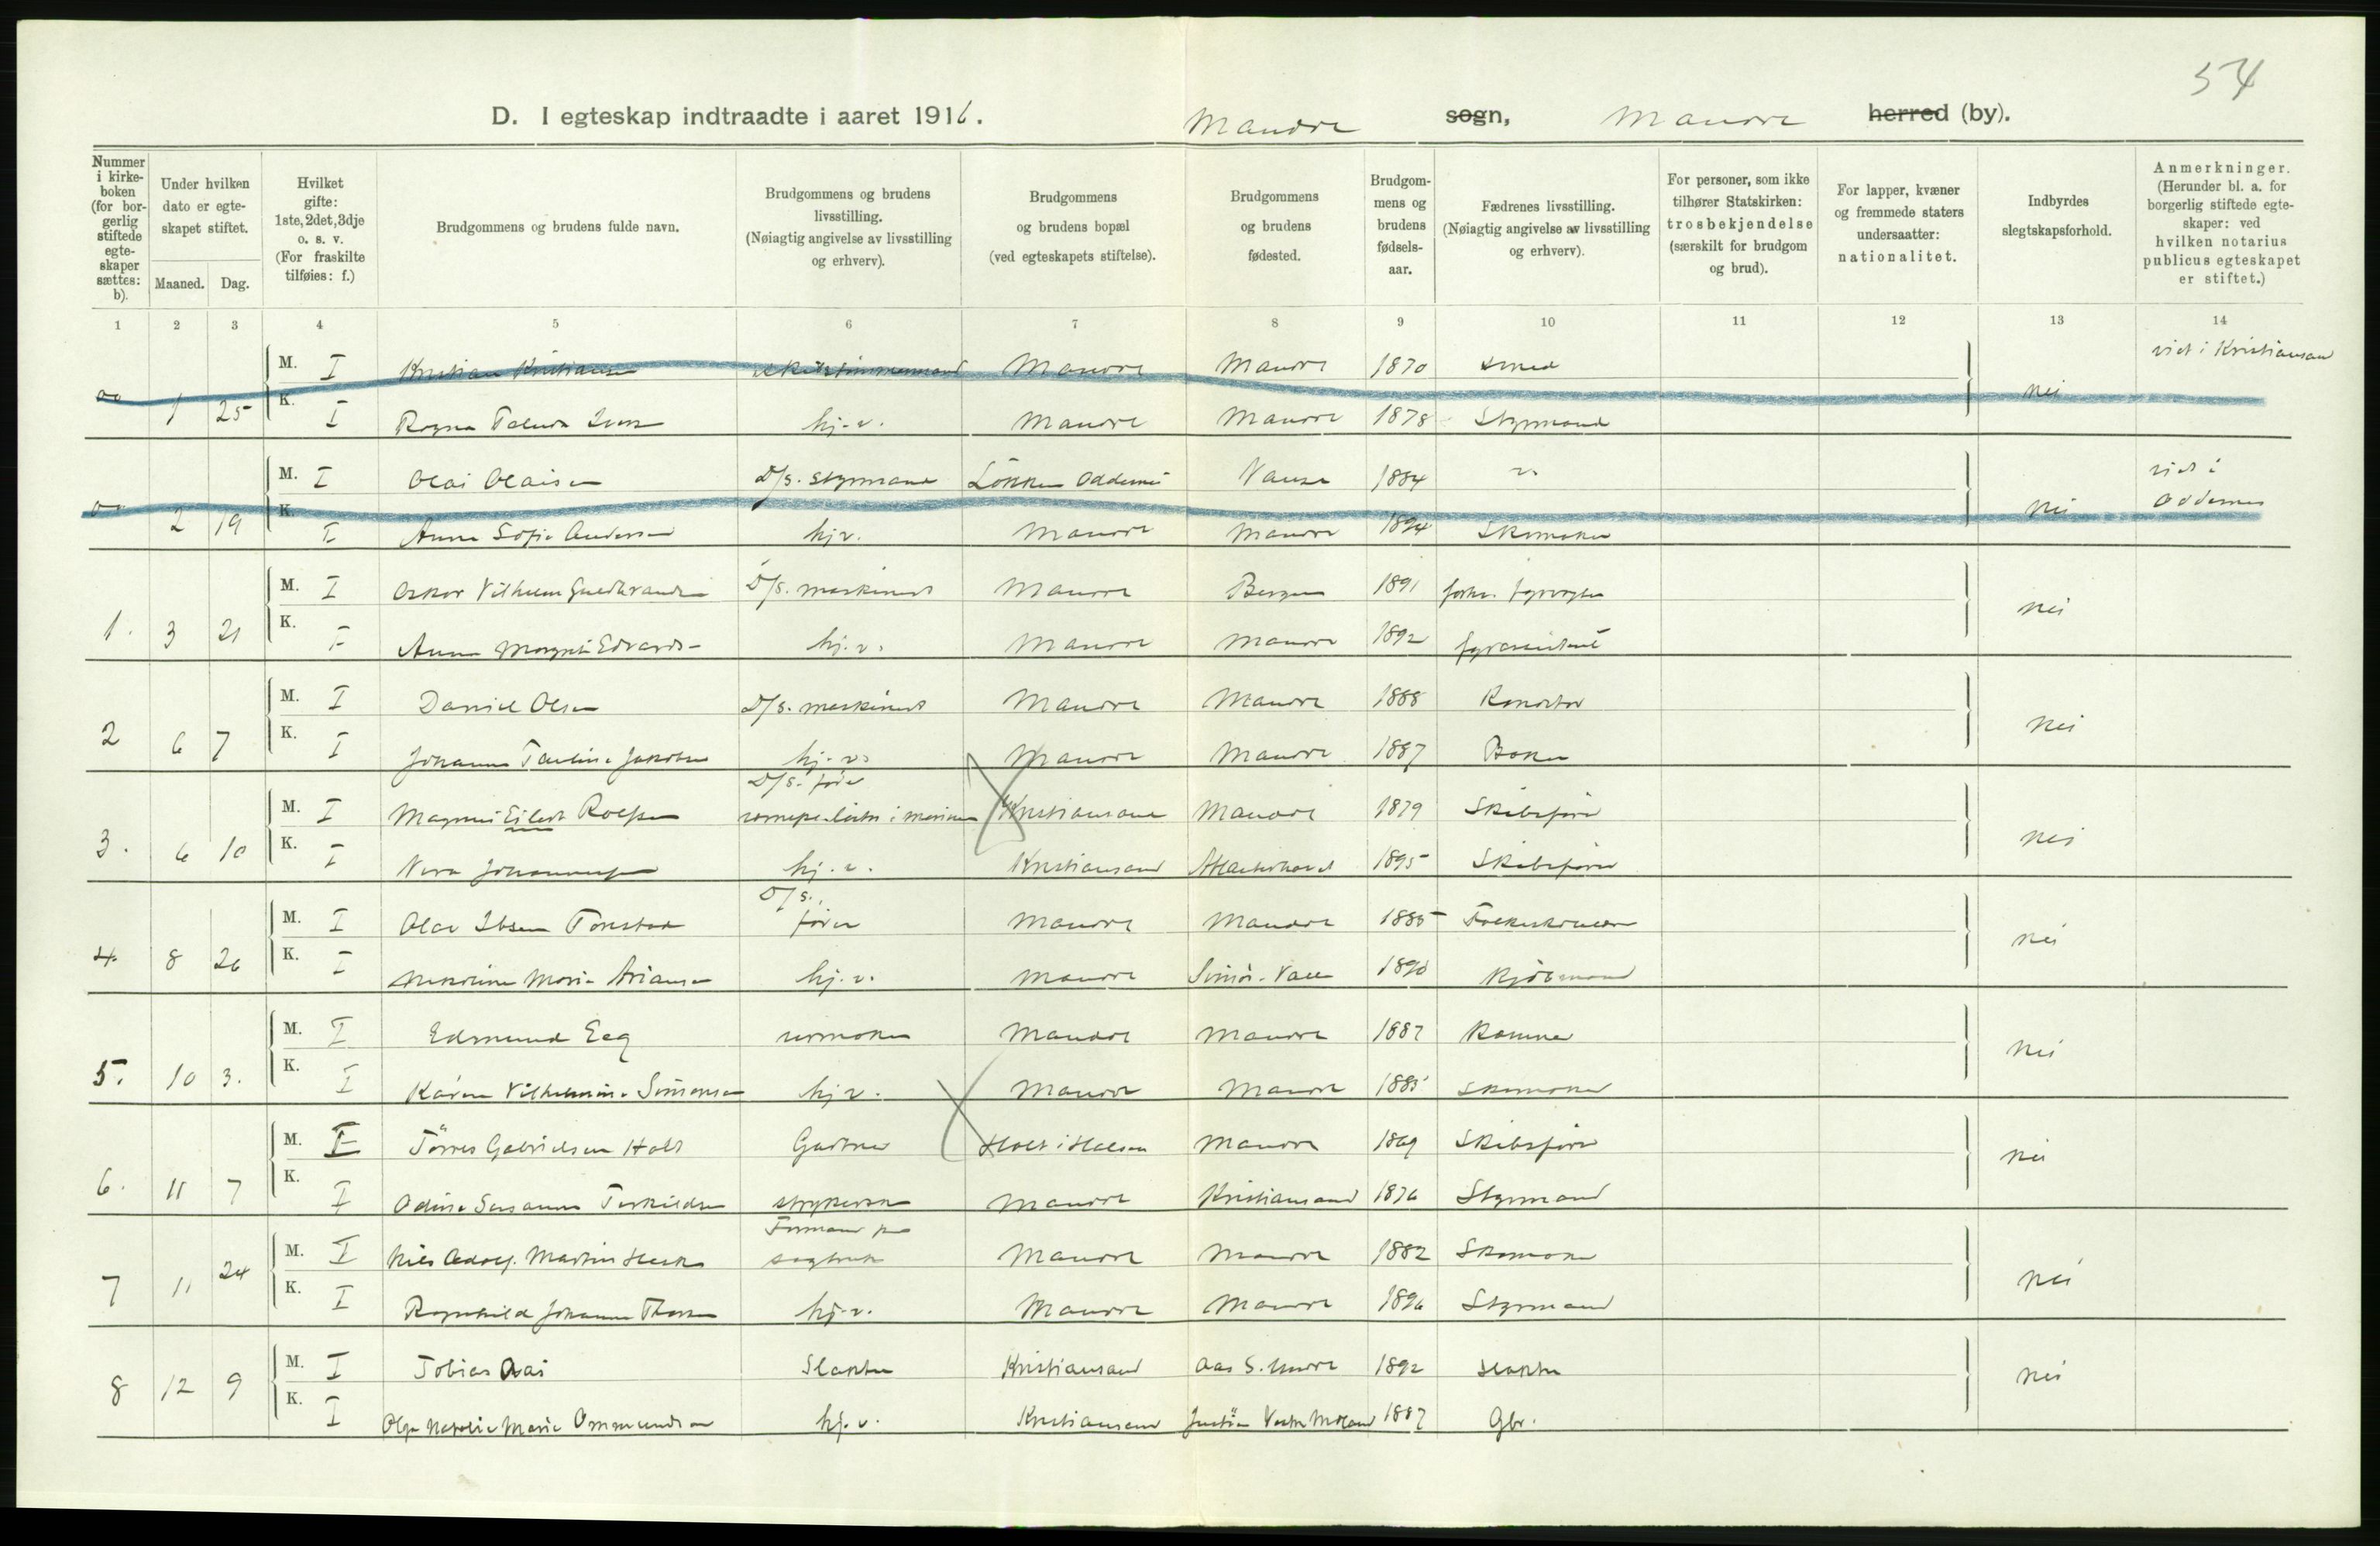 54
D. I egteskap indtraadte i aaret 1916. Mandal sogn, Mandal herred (by).
Nummer i kirkeboken (for borgerlig stiftede egteskaper sættes: b).
Under hvilken dato er egteskapet stiftet.
Maaned. Dag.
Hvilket gifte: 1ste, 2det, 3dje o. s. v. (For fraskilte tilføies: f.)
Brudgommens og brudens fulde navn.
Brudgommens og brudens livsstilling. (Nøiagtig angivelse av livsstilling og erhverv).
Brudgommens og brudens bopæl (ved egteskapets stiftelse).
Brudgommens og brudens fødested.
Brudgommens og brudens fødselsaar.
Fædrenes livsstilling. (Nøiagtig angivelse av livsstilling og erhverv).
For personer, som ikke tilhører Statskirken: trosbekjendelse (særskilt for brudgom og brud).
For lapper, kvæner og fremmede staters undersaatter: nationalitet.
Indbyrdes slegtskapsforhold.
Anmerkninger. (Herunder bl. a. for borgerlig stiftede egteskaper: ved hvilken notarius publicus egteskapet er stiftet.)
1 2 3 4 5 6 7 8 9 10 11 12 13 14
M. I Kristian Kristiansen Skibstømmermand Mandal Mandal 1870 Smed viet i Kristiansand
1 25 K. I hj. v. Mandal Mandal 1878 Styrmand nei
M. I Olai Olaisen D/s. styrmand Oddernes Vanse 1884 viet i Oddernes
2 19 K. I Anna Sofie Andersen hj. v. Mandal Mandal 1894 Skomaker nei
M. I Oskar Vilhelm Guldbrandsen D/s. maskinist Mandal Bergen 1891
1. 3 21 K. I Anna Margrethe hj. v. Mandal Mandal 1892 fyrassistent nei
M. I Daniel Olsen D/s. maskinist Mandal Mandal 1888
2 6 7 K. I Johanne Pauline Jakobsen hj. v. Mandal Mandal 1887 Baker nei
M. I Magnus Eilert Roelfsen D/s. fører Kristiansand Mandal 1879 Skibsfører
3. 6 10 K. I Johannesen hj. v. Kristiansand 1895 Skibsfører nei
M. I Olav Ibsen D/s. fører Mandal Mandal 1885
4. 8 26 K. I Marie hj. v. Mandal 1890 Kjøbmand nei
M. I Edmund Eeg urmaker Mandal Mandal 1887
5. 10 3. K. I Karen Vilhelmine Simonsen hj. v. Mandal Mandal 1885 Skomaker nei
M. I Tørres Gabrielsen Holt Gartner Holt i Halsen Mandal 1869 Skibsfører
6. 11 7 K. I Odine Susanne Terkildsen strykerske Mandal Kristiansand 1876 Styrmand nei
M. I Nils Adolf Martin Formand paa sagbruk Mandal Mandal 1882 Skomaker
7 11 24 K. I Ragnhild Johanne hj. v. Mandal Mandal 1896 Styrmand nei
M. I Tobias Aas Slakter Kristiansand Aas S. Undal 1892 Slakter
8 12 9 K. I Olga Natalie Marie Ommundsen hj. v. Kristiansand Vestre Moland 1887 Gbr. nei